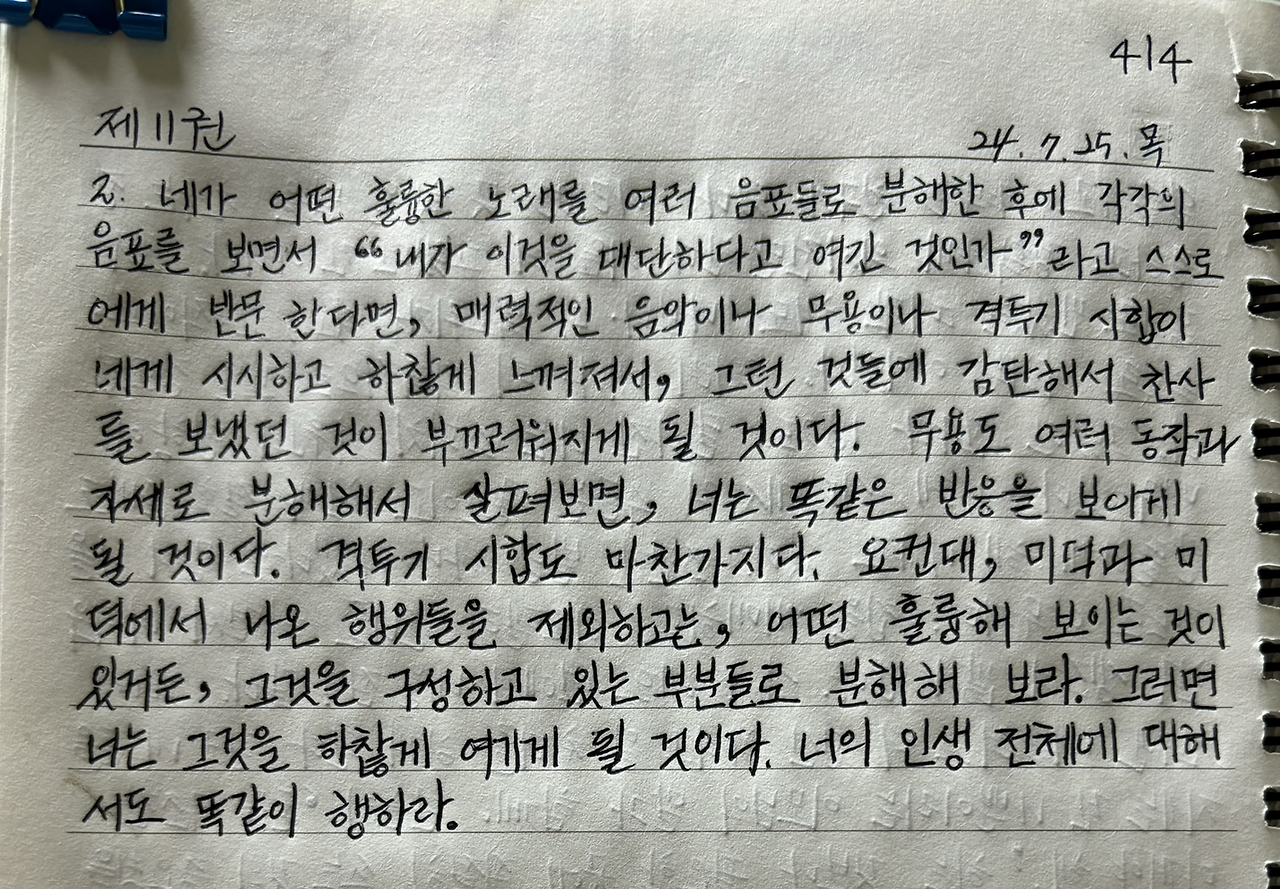 414
제11권 24.7.25.목
2. 네가 어떤 훌륭한 노래를 여러 음표들로 분해한 후에 각각의
음표를 보면서 “내가 이것을 대단하다고 여긴 것인가”라고 스스로
에게 반문 한다면, 매력적인 음악이나 무용이나 격투기 시합이
네게 시시하고 하찮게 느껴져서, 그런 것들에 감탄해서 찬사
를 보냈던 것이 부끄러워지게 될 것이다. 무용도 여러 동작과
자세로 분해해서 살펴보면, 너는 똑같은 반응을 보이게
될 것이다. 격투기 시합도 마찬가지다. 요컨대, 미덕과 미
덕에서 나온 행위들을 제외하고는, 어떤 훌륭해 보이는 것이
있거든, 그것을 구성하고 있는 부분들로 분해해 보라. 그러면
너는 그것을 하찮게 여기게 될 것이다. 너의 인생 전체에 대해
서도 똑같이 행하라.